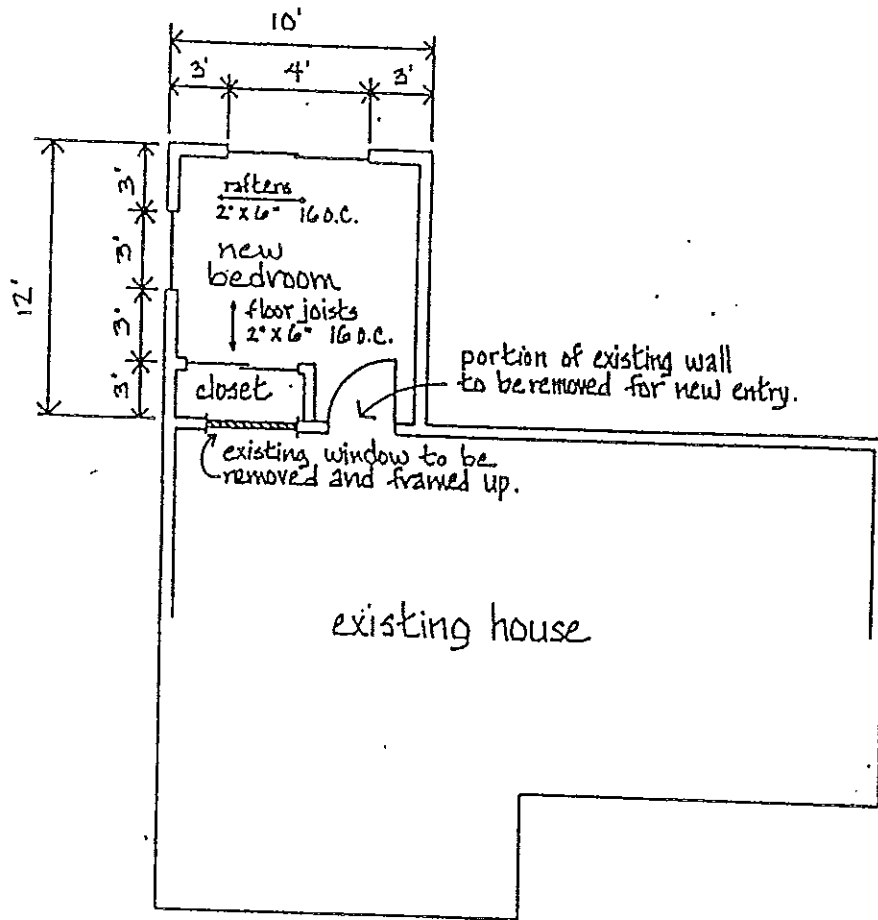 10'
3' 4' 3'
12'
3'
3'
3'
3'
rafters
2" x 6" 16 O.C.
new
bedroom
floor joists
2" x 6" 16 O.C.
closet
portion of existing wall
to be removed for new entry.
existing window to be
removed and framed up.
existing house